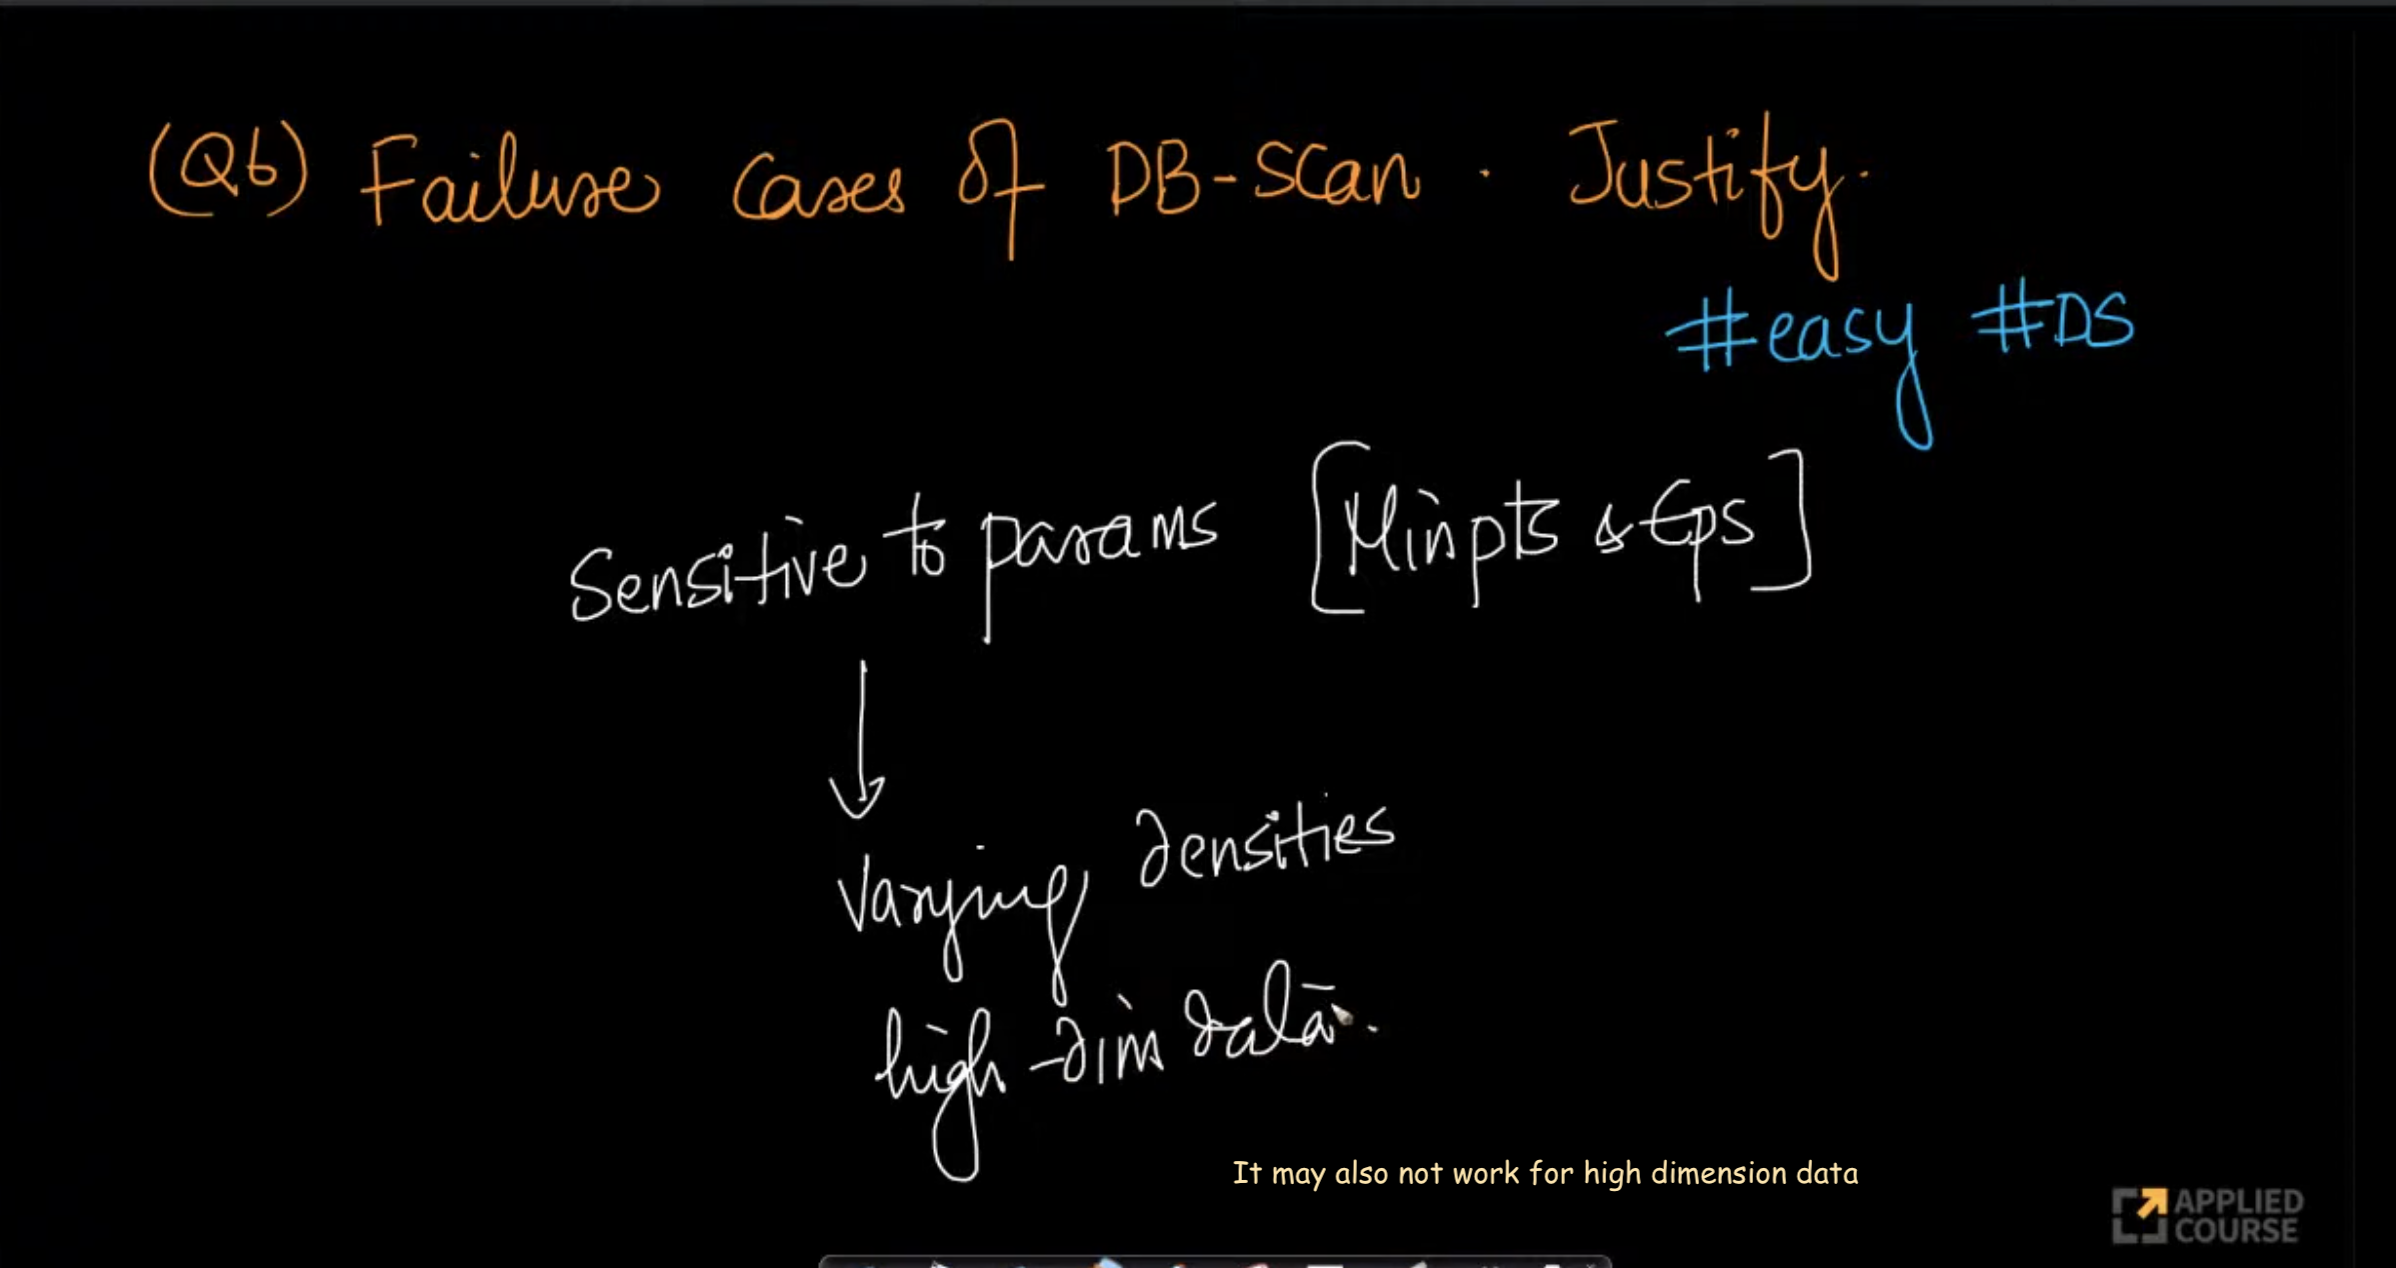 (Q6) Failure Cases of DB-SCan. Justify.
#easy #DS
Sensitive to params [Minpts & Eps]
Varying densities
high-dim data.
It may also not work for high dimension data
APPLIED
COURSE